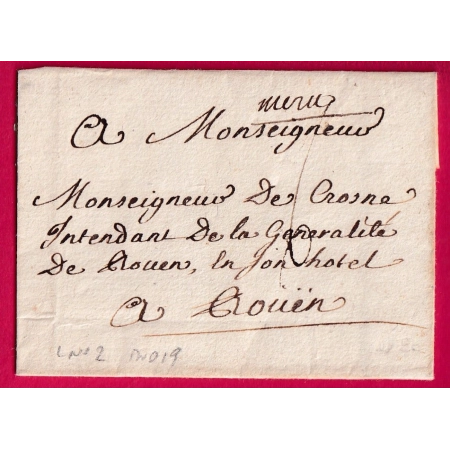 meru
A Monseigneur
Monseigneur De Crosne
Intendant De la Generalité
De Rouen, en son hotel
A Roüen
L N° 2